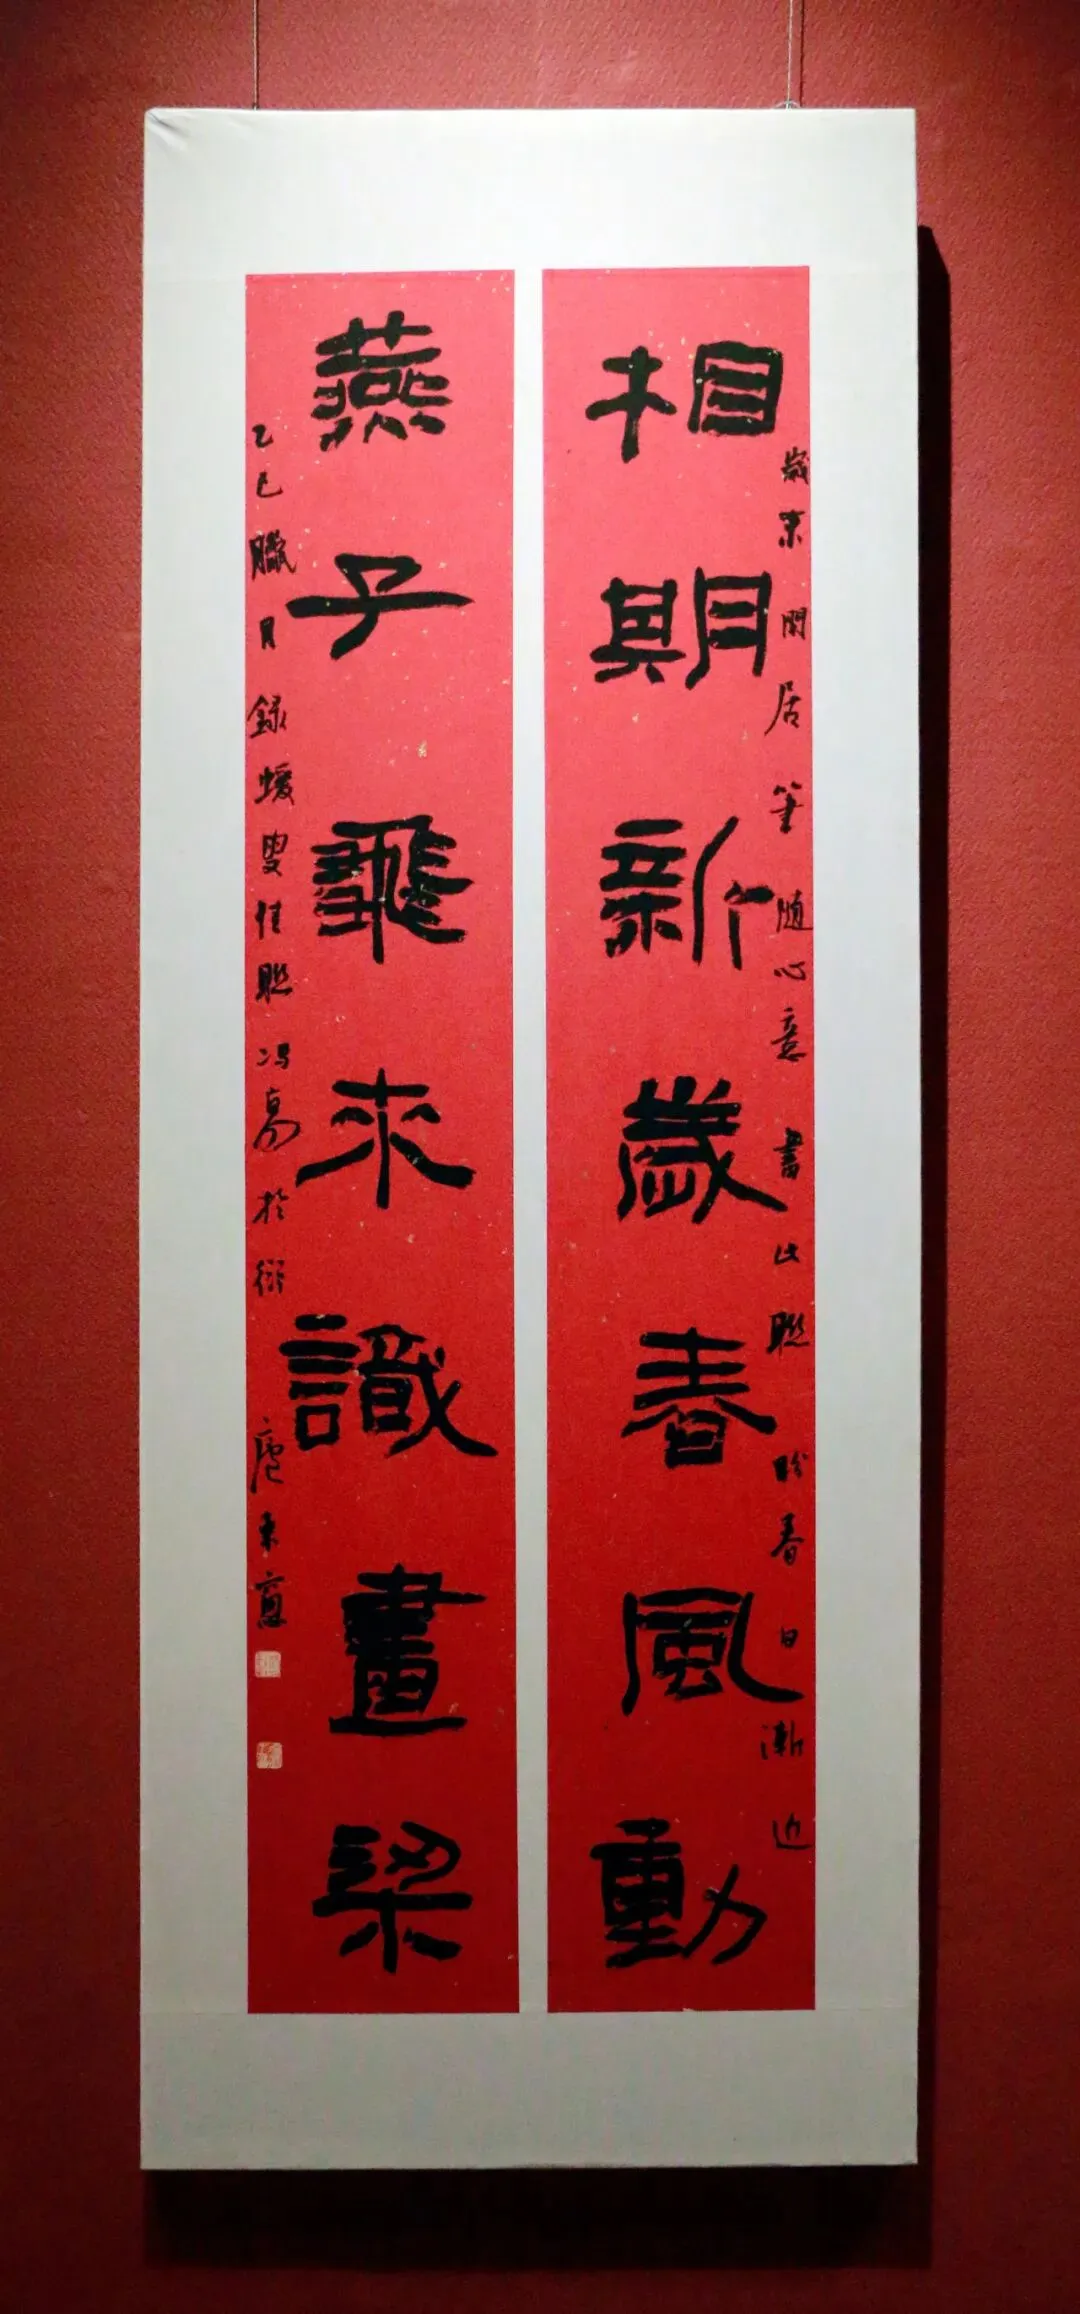 相期新歲春風動
歲末閑居筆隨心意書此聯盼春日漸近
燕子飛來識畫梁
乙巳臘月錄蝯叟佳聯馮易於衍廬東窗